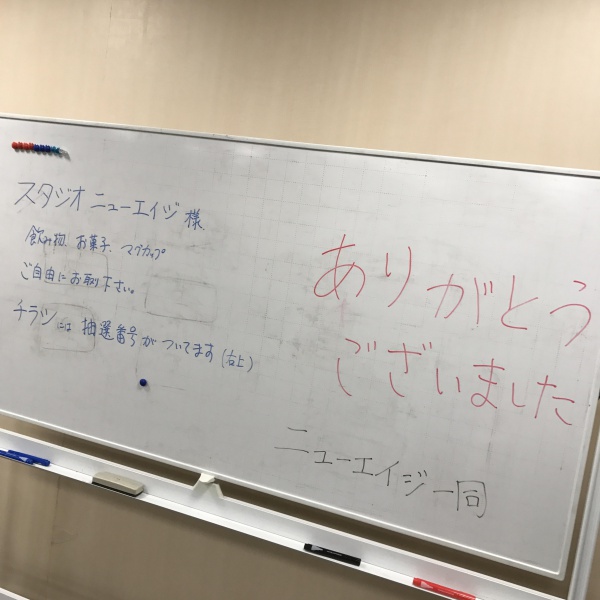 スタジオ ニューエイジ 様
飲み物、お菓子、マグカップ
ご自由にお取り下さい。
チラシには 抽選番号が ついてます (右上)
ありがとう
ございました
ニューエイジ一同